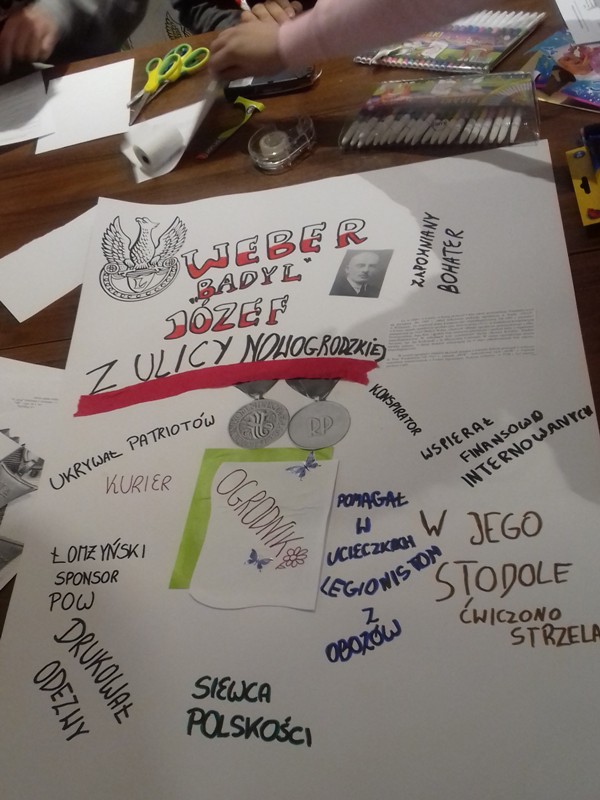 WEBER
"BADYL"
JÓZEF
Z ULICY NOWOGRODZKIEJ
ZAPOMNIANY
BOHATER
KONSPIRATOR
RP
WSPIERAŁ
FINANSOWO
INTERNOWANYCH
UKRYWAŁ PATRIOTÓW
KURIER
OGRODNIK
POMAGAŁ
W
UCIECZKACH
LEGIONISTOM
Z
OBOZÓW
W JEGO
STODOLE
ĆWICZONO
STRZELA
ŁOMŻYŃSKI
SPONSOR
POW
DRUKOWAŁ
ODEZWY
SIEWCA
POLSKOŚCI